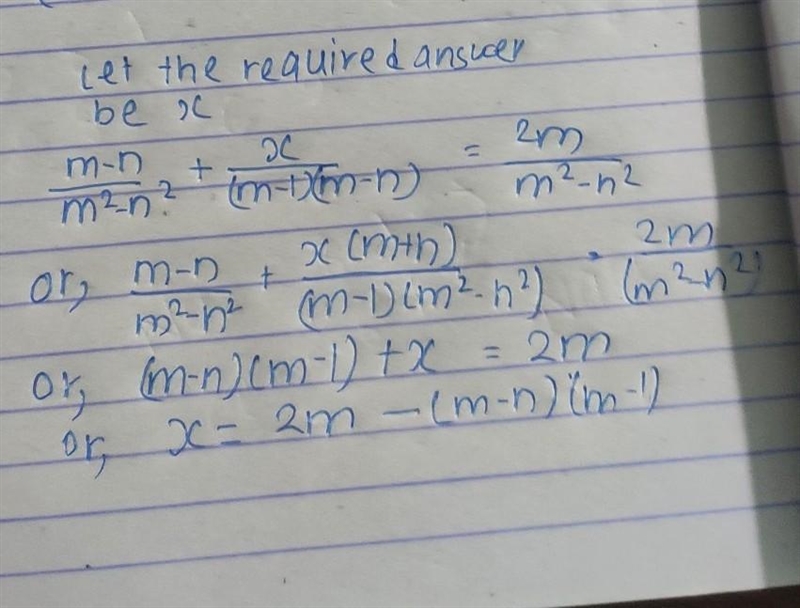 Let the required answer
be x
m-n/m²-n² + x/(m-1)(m-n) = 2m/m²-n²
or, m-n/m²-n² + x(m+n)/(m-1)(m²-n²) = 2m/(m²-n²)
or, (m-n)(m-1) + x = 2m
or, x = 2m - (m-n)(m-1)